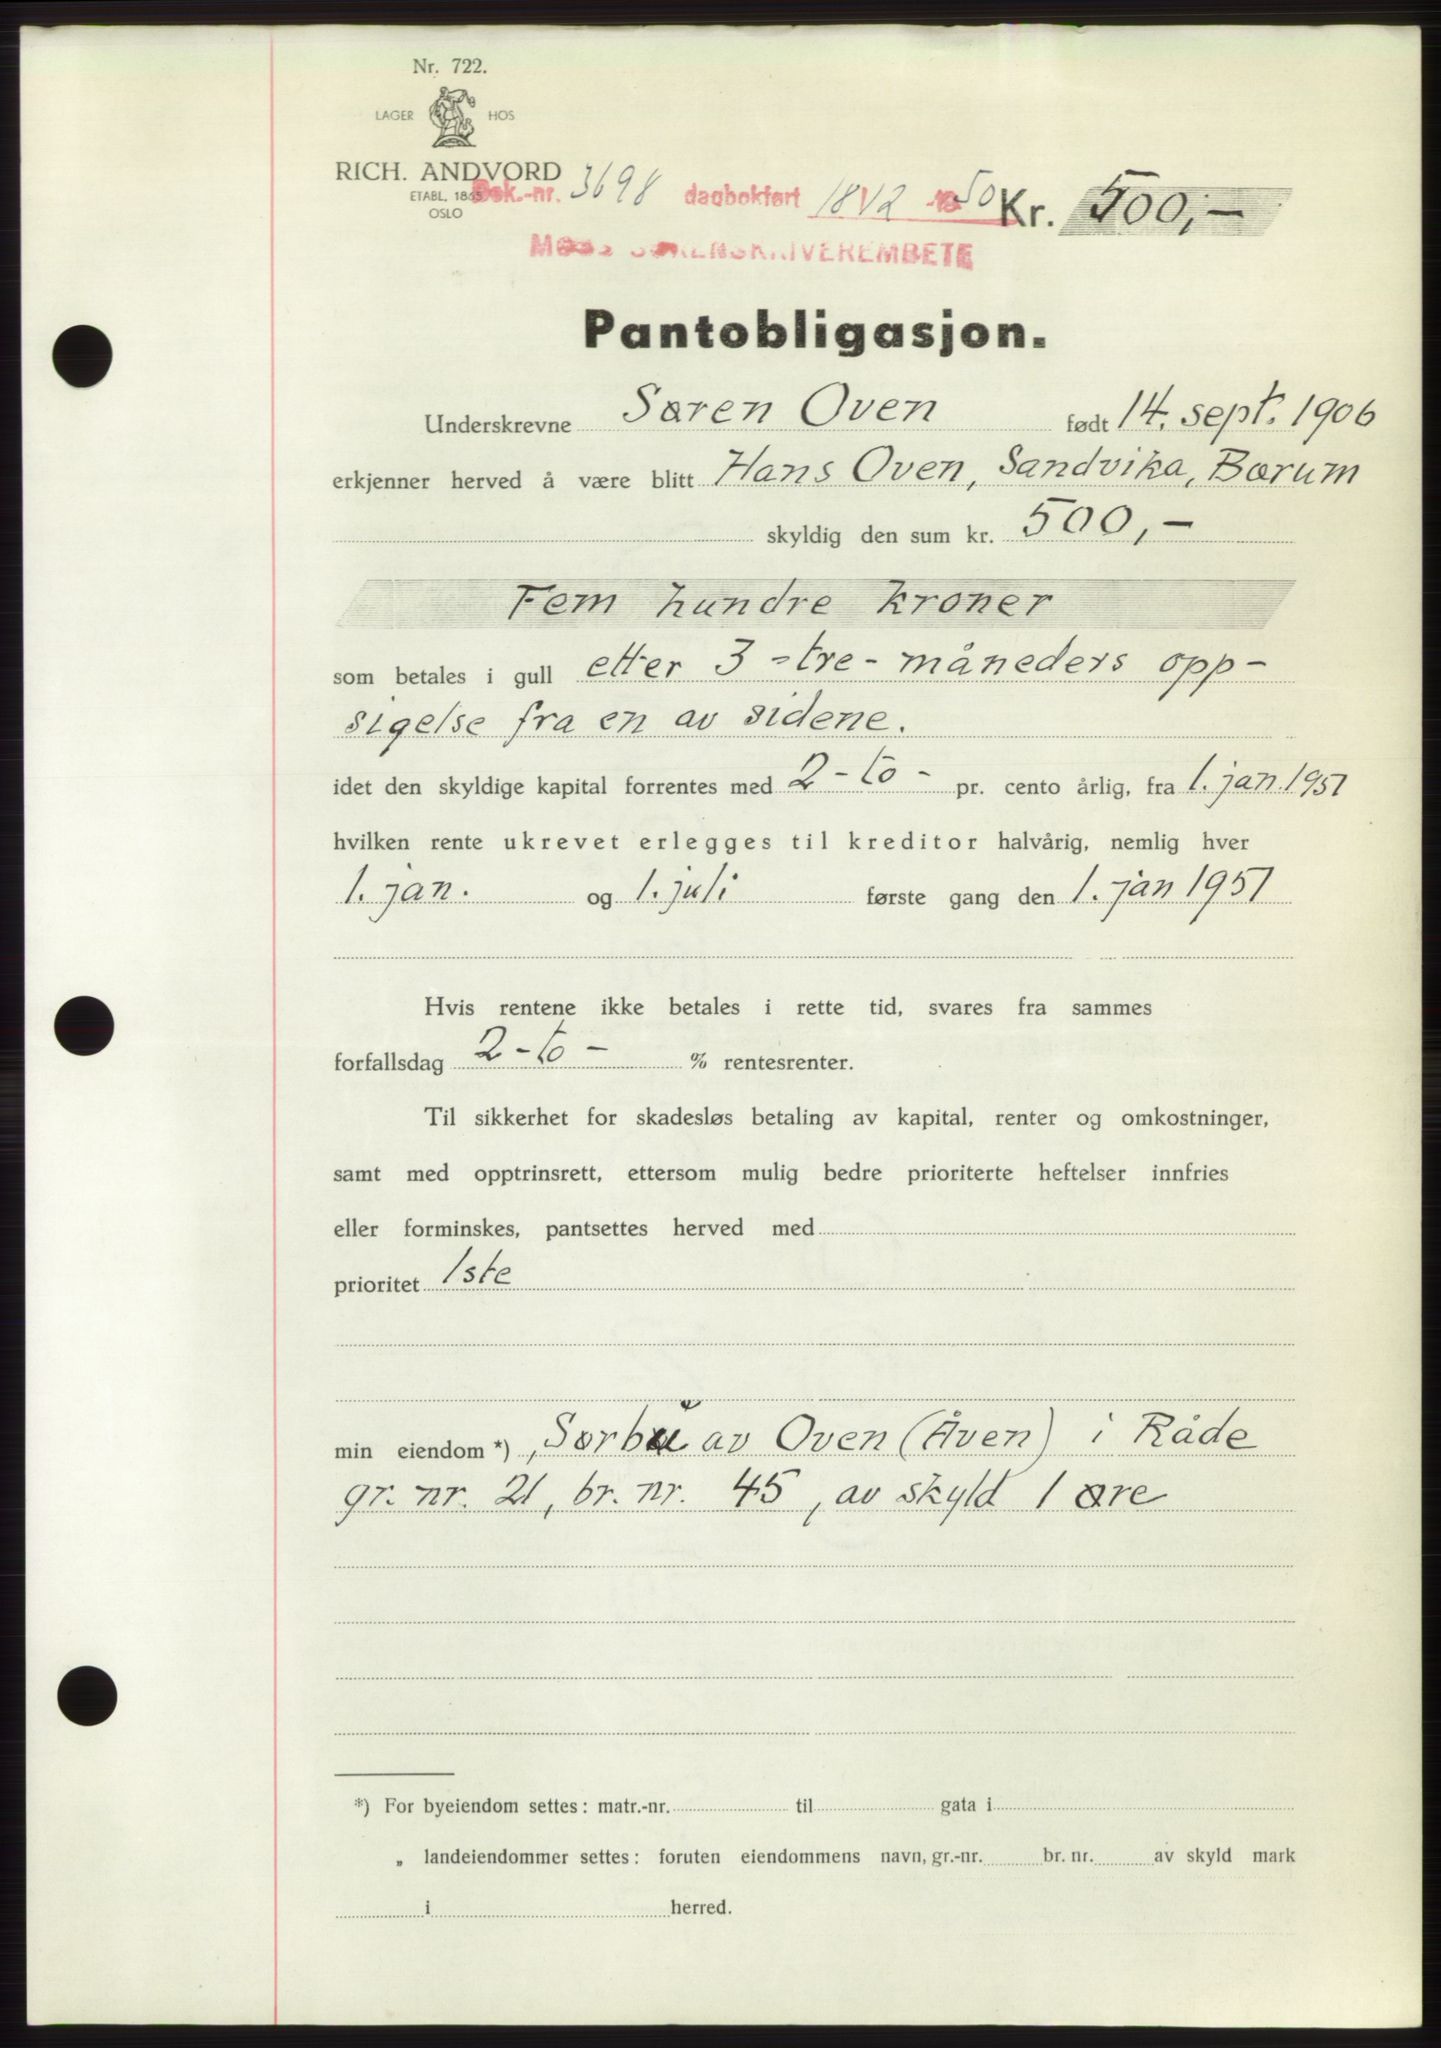 Nr. 722.
LAGER HOS
RICH. ANDVORD
ETABL. 1865
OSLO
Dok.-nr. 3698 dagbokført 18/12 - 1950
Kr. 500,-
MOSS SORENSKRIVEREMBETE
Pantobligasjon.
Underskrevne Søren Oven født 14. sept. 1906
erkjenner herved å være blitt Hans Oven, Sandvika, Bærum
skyldig den sum kr. 500,-
Fem hundre kroner
som betales i gull etter 3 -tre- måneders opp-
sigelse fra en av sidene.
idet den skyldige kapital forrentes med 2 - to - pr. cento årlig, fra 1. jan. 1951
hvilken rente ukrevet erlegges til kreditor halvårig, nemlig hver
1. jan. og 1. juli første gang den 1. jan 1951
Hvis rentene ikke betales i rette tid, svares fra sammes
forfallsdag 2 - to - % rentesrenter.
Til sikkerhet for skadesløs betaling av kapital, renter og omkostninger,
samt med opptrinsrett, ettersom mulig bedre prioriterte heftelser innfries
eller forminskes, pantsettes herved med
prioritet 1ste
min eiendom *) , av Oven (Åven) i Råde
gr. nr. 21, br. nr. 45, av skyld 1 øre
*) For byeiendom settes: matr.-nr. til gata i
„ landeiendommer settes: foruten eiendommens navn, gr.-nr. br. nr. av skyld mark
i herred.